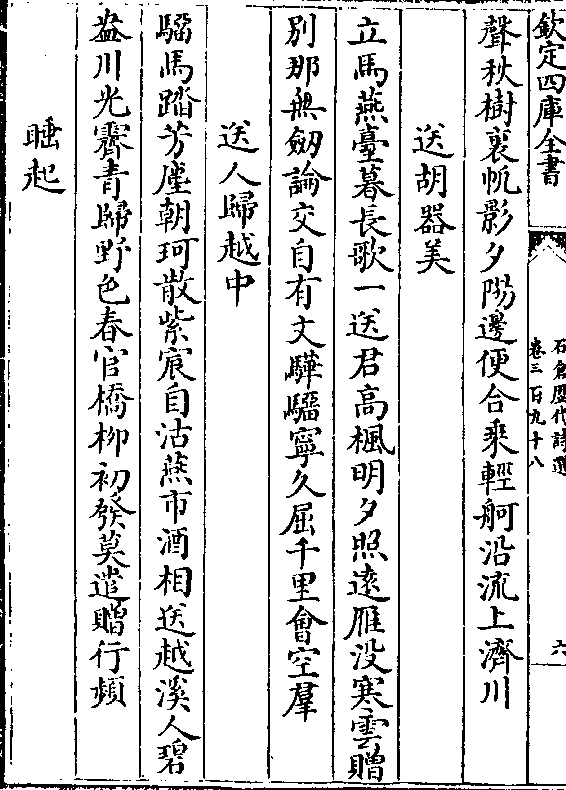 欽定四庫全書
石倉歴代詩選
卷三百九十八
六
聲秋樹裏帆影夕陽邊便合乘輕舸沿流上濟川
送胡器美
立馬燕臺暮長歌一送君高楓明夕照逺雁没寒雲贈
別那無劒論交自有文驊騮寧久屈千里會空羣
送人歸越中
騮馬踏芳塵朝珂散紫宸自沽燕市酒相送越溪人碧
㿻川光霽青歸野色春官橋栁初發莫遣贈行頻
睡起